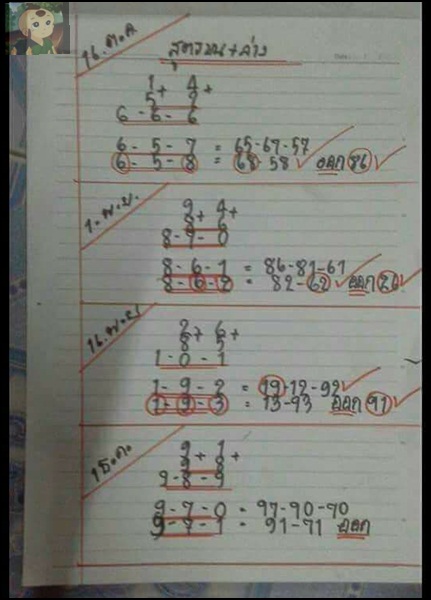 16.ต.ค
สูตรบน+ล่าง
1+ 4+
5 2
6-6-6
6-5-7 = 65-67-57
6-5-8 = 68 58 ออก 86
1.พ.ย.
9+ 4+
8 6
8-7-0
8-6-1 = 86-81-61
8-6-2 = 82-62 ออก 26
16.พ.ย
2+ 6+
8 5
1-0-1
1-9-2 = 19-12-92
1-9-3 = 13-93 ออก 91
1ธ.ค.
9+ 1+
9 8
9-8-9
9-7-0 = 97-90-70
9-7-1 = 91-71 ออก